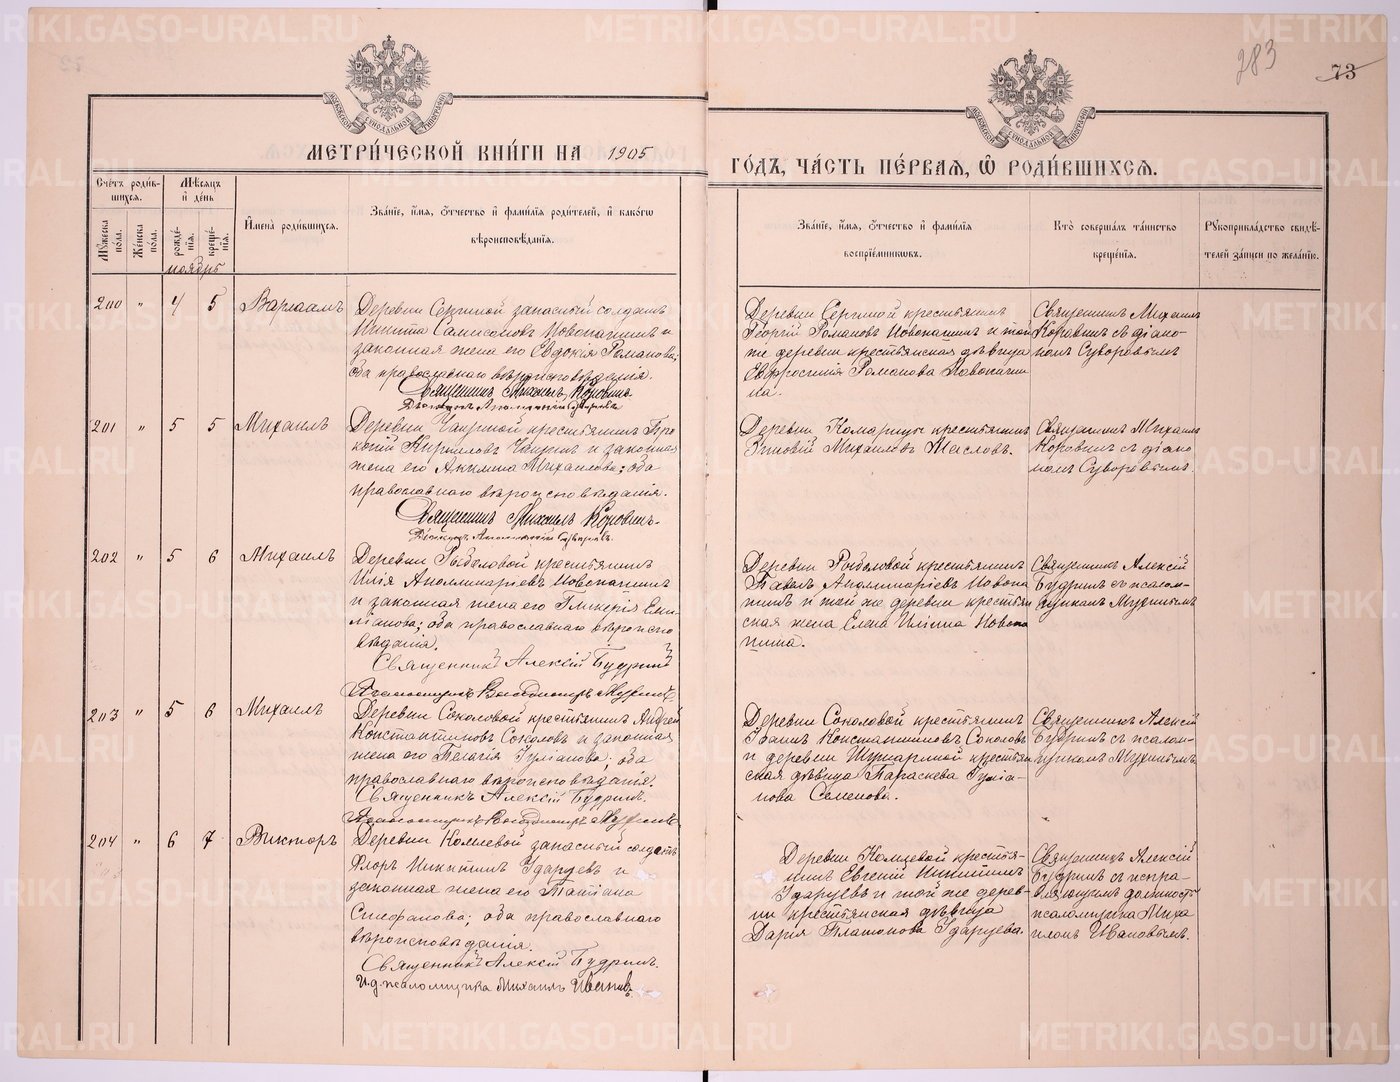 283
73
МОСКОВСКОЙ СѴНОДАЛЬНОЙ ТИПОГРАФІИ
МОСКОВСКОЙ СѴНОДАЛЬНОЙ ТИПОГРАФІИ
МЕТРИ́ЧЕСКОЙ КНИ́ГИ НА 1905
ГО́ДЪ, ЧА́СТЬ ПЕ́РВАЯ, Ѡ҆ РОДИ́ВШИХСЯ.
Сче́тъ роди́в-
шихся.
Му́жеска по́ла.
Же́нска по́ла.
Мѣ́сяцъ
и҆ де́нь
рожде́-
нія.
креще́-
нія.
ноябрь
И҆мена̀ роди́вшихся.
Зва́ніе, и҆́мя, ѻ҆́тчество и҆ фами́лія роди́телей, и҆ како́гѡ
вѣроисповѣ́данія.
Зва́ніе, и҆́мя, ѻ҆́тчество и҆ фами́лія
воспріе́мниковъ.
Кто̀ соверша́лъ та́инство
креще́нія.
Рꙋкоприкла́дство свидѣ́-
телей за́писи по жела́нію.
200 " 4 5 Варлаамъ
Деревни Сергиной запасный солдатъ
Никита Самсоновъ Новопашинъ и
законная жена его Евдокія Романова;
оба православнаго вѣроисповѣданія.
Священникъ Михаилъ Коровинъ.
Діаконъ Аполлоній Суворовъ
Деревни Сергиной крестьянинъ
Георгій Романовъ Новопашинъ и той
же деревни крестьянская дѣвица
Евфросинія Романова Новопаши
на.
Священникъ Михаилъ
Коровинъ съ діако-
номъ Суворовымъ
201 " 5 5 Михаилъ
Деревни Чащиной крестьянинъ Про
копій Кирилловъ Чащинъ и законная
жена его Акилина Михаилова; оба
православнаго вѣроисповѣданія.
Священникъ Михаилъ Коровинъ.
Діаконъ Аполлоній Суворовъ.
Деревни Комарицы крестьянинъ
Зиновій Михаиловъ Масловъ.
Священникъ Михаилъ
Коровинъ съ діако
номъ Суворовымъ.
202 " 5 6 Михаилъ
Деревни Рыболовой крестьянинъ
Илія Аполлинаріевъ Новопашинъ
и законная жена его Гликерія Еми
ліанова; оба православнаго вѣроиспо
вѣданія.
Священникъ Алексій Будринъ
Псаломщикъ Владимиръ Мухинъ
Деревни Рыболовой крестьянинъ
Павелъ Аполлинаріевъ Новопа
шинъ и той же деревни крестьян
ская жена Елена Иліина Новопа
шина.
Священникъ Алексій
Будринъ съ псалом-
щикомъ Мухинымъ
203 " 5 6 Михаилъ
Деревни Соколовой крестьянинъ Андрей
Константиновъ Соколовъ и законная
жена его Пелагія Іуліанова; оба
православнаго вѣроисповѣданія.
Священникъ Алексій Будринъ.
Псаломщикъ Владимиръ Мухинъ.
Деревни Соколовой крестьянинъ
Іоаннъ Константиновъ Соколовъ
и деревни крестьян
ская дѣвица Параскева Іуліа-
нова Семенова.
Священникъ Алексій
Будринъ съ псалом-
щикомъ Мухинымъ
204 " 6 7 Викторъ
Деревни Комлевой запасный солдатъ
Флоръ Никитинъ Ударцевъ и
законная жена его Татіана
Стефанова; оба православнаго
вѣроисповѣданія.
Священникъ Алексій Будринъ.
И.д. псаломщика Михаилъ Ивановъ.
Деревни Комлевой крестья-
нинъ Евгеній Никитинъ
Ударцевъ и той же дерев-
ни крестьянская дѣвица
Дарія Платонова Ударцева.
Священникъ Алексій
Будринъ съ испра
вляющимъ должность
псаломщика Миха
иломъ Ивановымъ.
METRIKI.GASO-URAL.RU